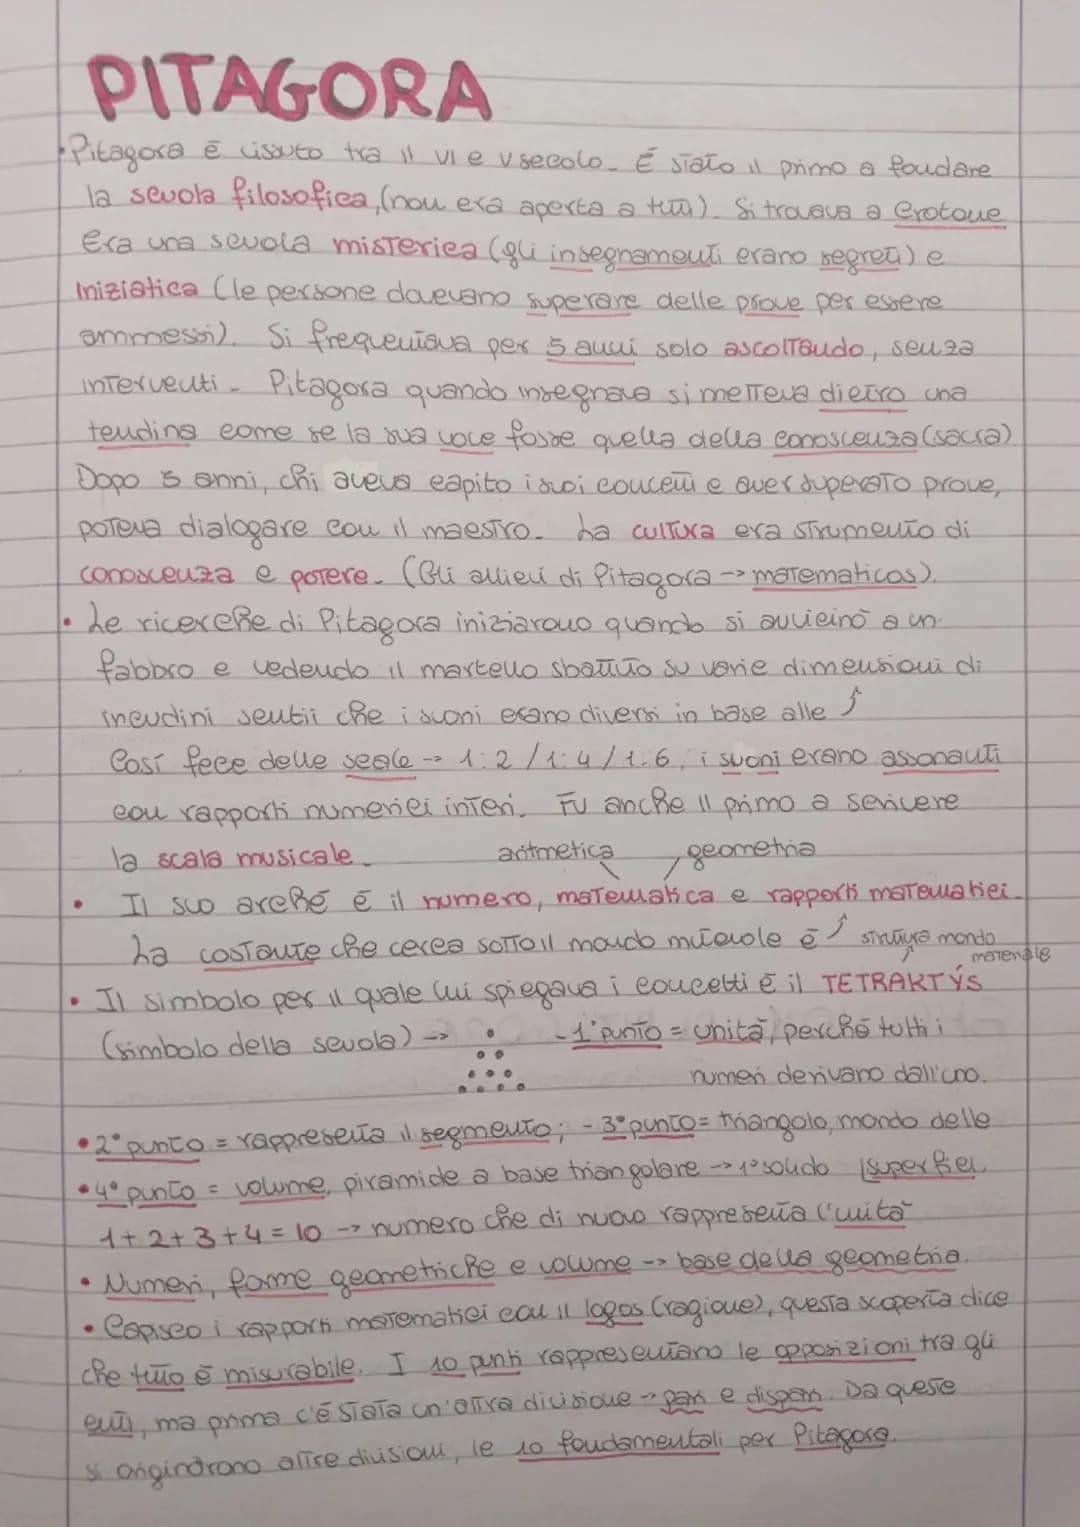 PITAGORA
• Pitagora è vissuto tra il VI e V secolo. É stato il primo a fondare
la scuola filosofica, (non era aperta a tutti). Si trovava a Crotone
Era una scuola misterica (gli insegnamenti erano segreti) e
Iniziatica (le persone dovevano superare delle prove per essere
ammessi). Si frequentava per 5 anni solo ascoltando, senza
interventi. Pitagora quando insegnava si metteva dietro una
tendina come se la sua voce fosse quella della conoscenza (sacra)
Dopo 5 anni, chi aveva capito i suoi concetti e aver superato prove,
poteva dialogare con il maestro. La cultura era strumento di
conoscenza e potere. (Gli allievi di Pitagora -> matematicos).
• Le ricerche di Pitagora iniziarono quando si avvicinò a un
fabbro e vedendo il martello sbattuto su varie dimensioni di
incudini sentii che i suoni erano diversi in base alle ↑
Così fece delle scale -> 1:2 / 1:4 / 1:6, i suoni erano assonanti
con rapporti numerici interi. Fu anche il primo a scrivere
la scala musicale. aritmetica geometria
• Il suo archè è il numero, matematica e rapporti matematici.
La costante che cerca sotto il mondo mutevole è ↑ struttura mondo
materiale
• Il simbolo per il quale lui spiegava i concetti è il TETRAKTÝS
(simbolo della scuola) -> - 1° punto = unità, perché tutti i
numeri derivano dall'uno.
• 2° punto = rappresenta il segmento; - 3° punto = triangolo, mondo delle
• 4° punto = volume, piramide a base triangolare -> 1° solido (superfici.
1+2+3+4=10 -> numero che di nuovo rappresenta l'unità
• Numeri, forme geometriche e volume -> base della geometria.
• Capisco i rapporti matematici con il logos (ragione), questa scoperta dice
che tutto è misurabile. I 10 punti rappresentano le opposizioni tra gli
enti, ma prima c'è stata un'altra divisione -> pari e dispari. Da queste
si originarono altre divisioni, le 10 fondamentali per Pitagora.